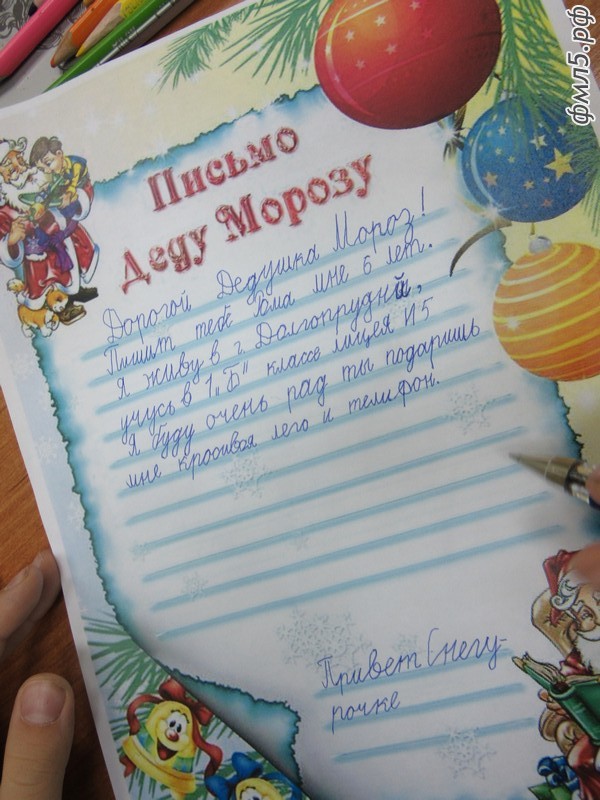 фмл5.рф
Письмо
Деду Морозу
Дорогой Дедушка Мороз!
Пишит тебе Рома мне 6 лет.
Я живу в г. Долгопрудный,
учусь в 1 „Б" классе лицея №5
Я буду очень рад ты подаришь
мне красивая лего и телифон.
Привет Снегу-
рочке